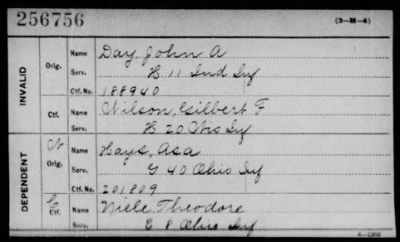 256756
(3-M-4)
INVALID
Orig.
Name Day, John A
Serv. H 11 Ind Inf
Ctf. No. 188940
Ctf.
Name Wilson, Gilbert F
Serv. H 20 Ohio Inf
DEPENDENT
Orig.
Name Hays, Asa
Serv. G 40 Ohio Inf
Ctf. No. 201809
Ctf.
Name Theodore
Serv. E 8 Ohio Inf